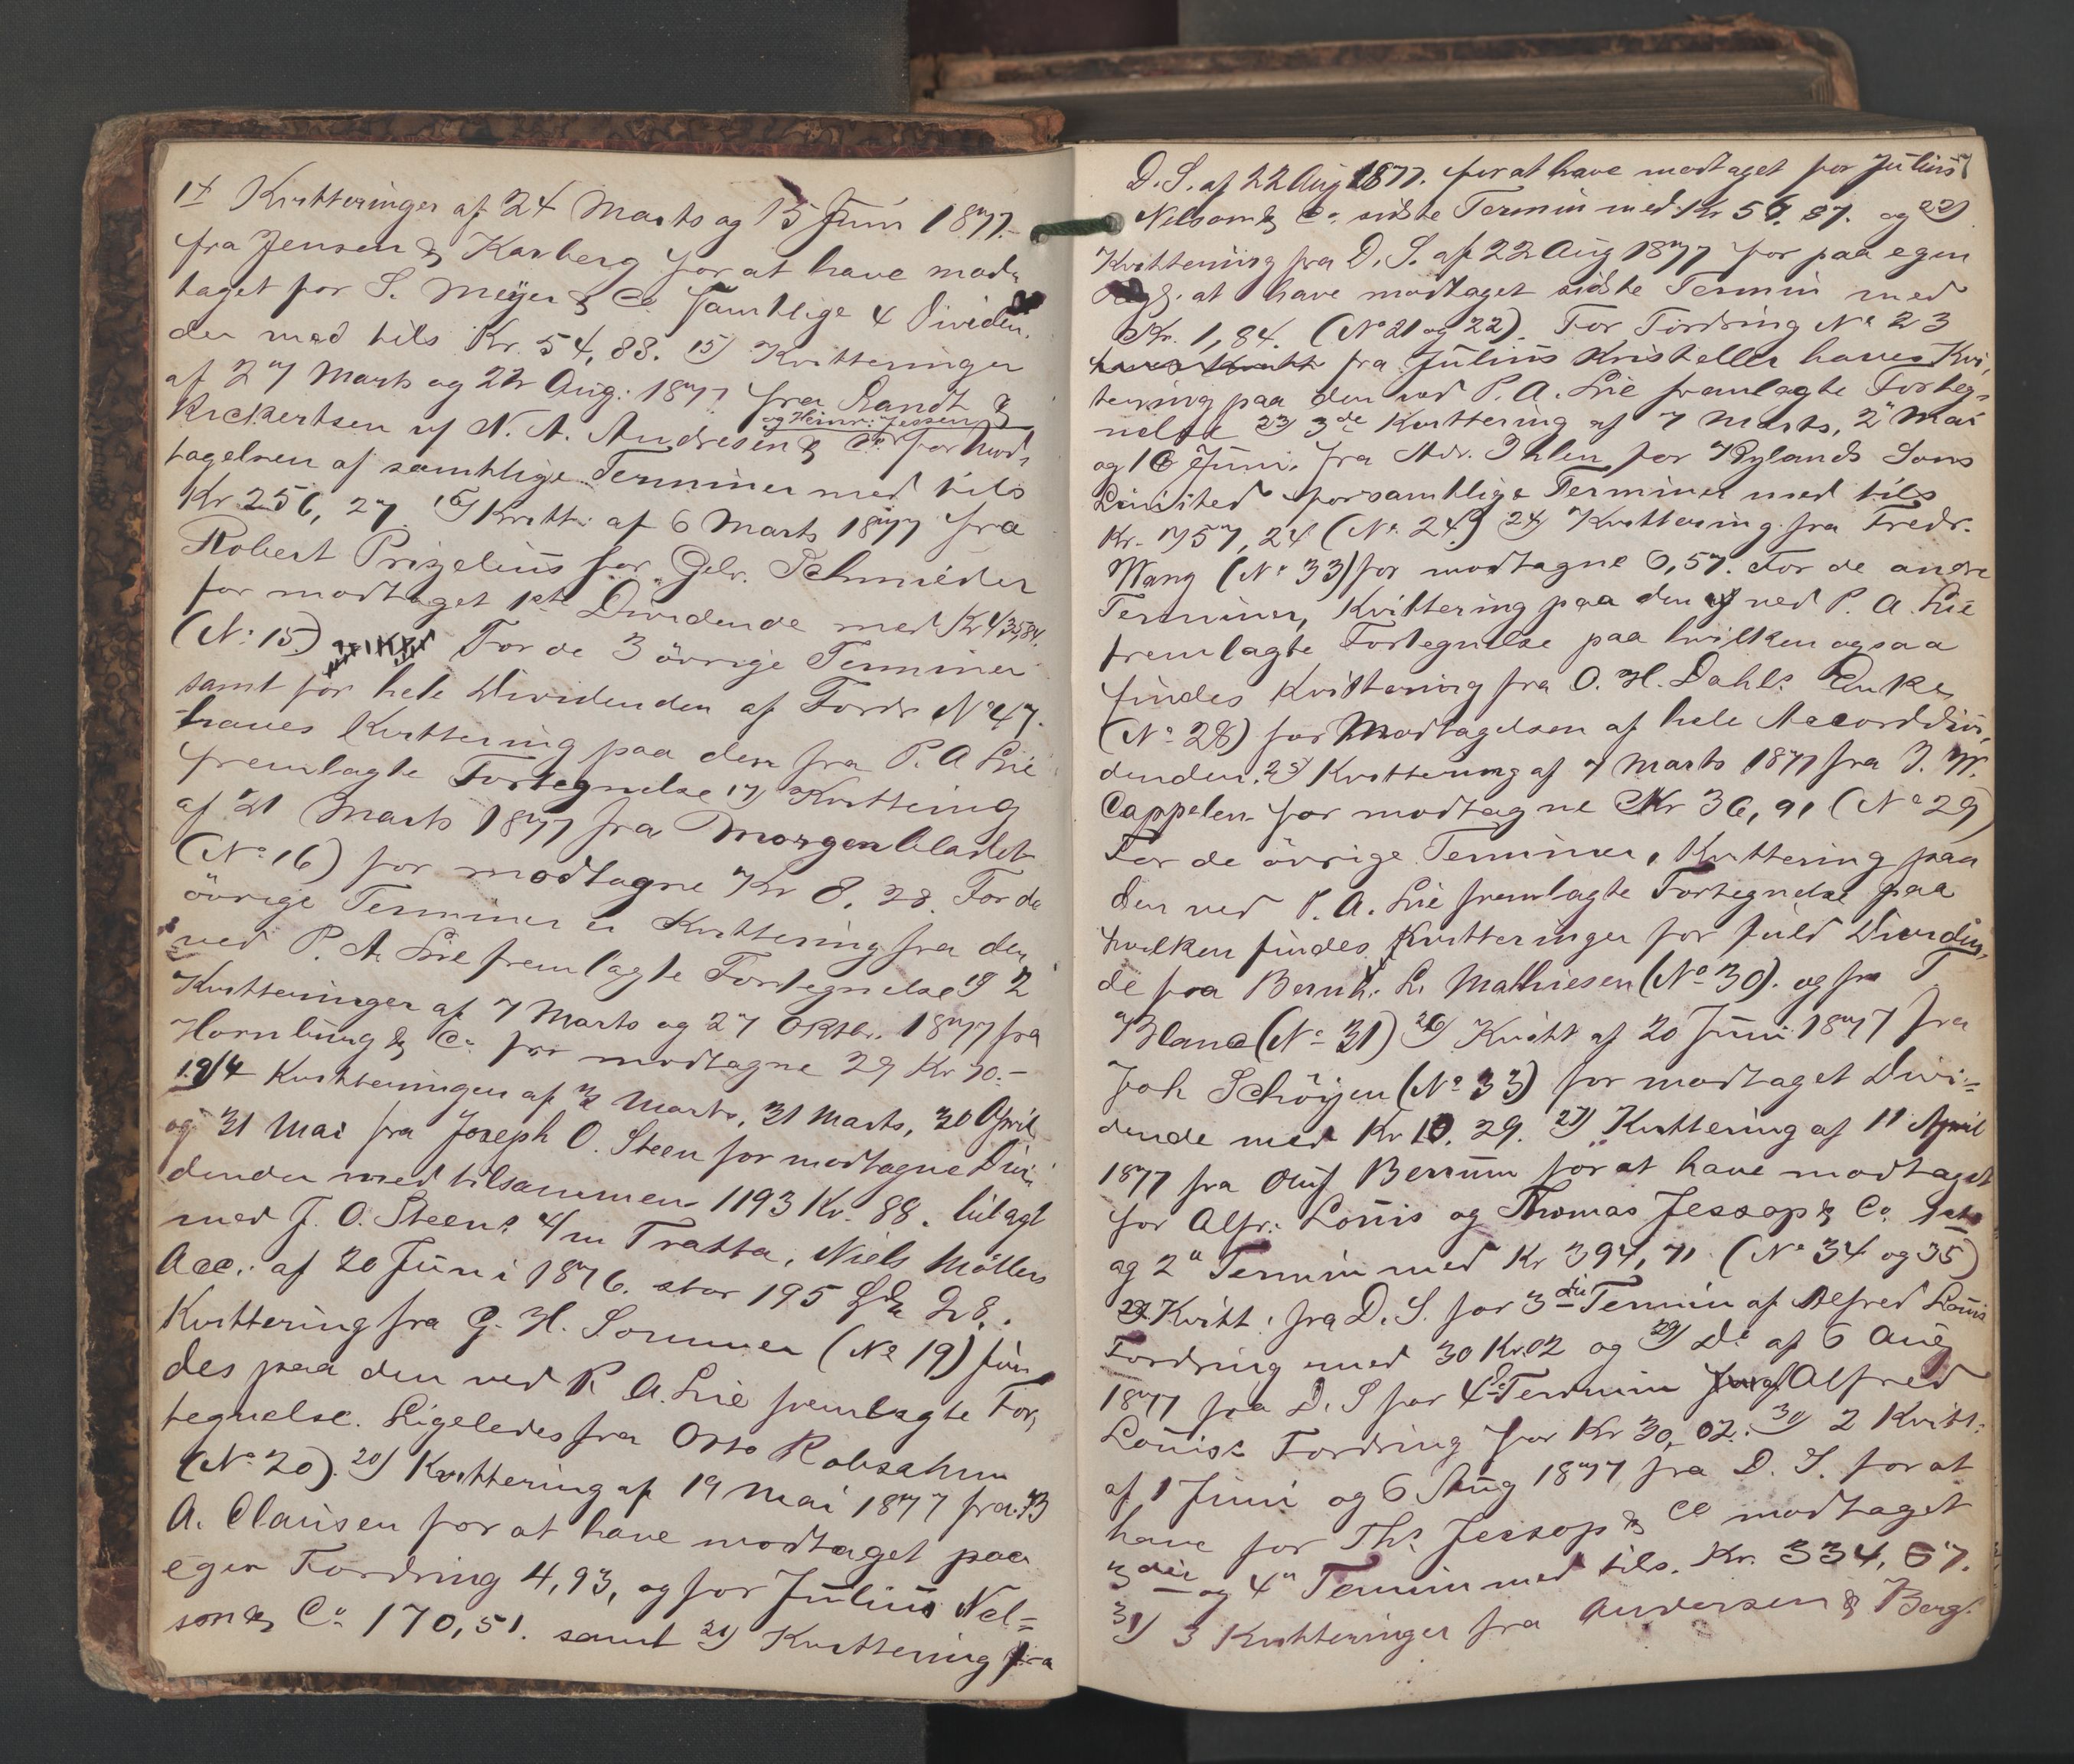 14 Kvitteringer af 24 Marts og 15 Juni 1877.
fra Jensen & Karberg for at have mod-
taget for S. Meyer & Co samtlige 4 Dividen-
der med tils Kr. 54,88. 15) Kvitteringer
af 27 Marts og 22 Aug: 1877 fra Randt &
og Heinr: Jessen
Rickertsen af N. A. Andresen & Co for Mod-
tagelsen af samtlige Terminer med tils
Kr 256, 27. 16) Kvitt: af 6 Marts 1877 fra
Robert Prizelius for Gebr. Schmieder
for modtaget 1ste Dividende med Kr 435,84.
(No 15) For de 3 övrige Terminer
samt for hele Dividenden af Fordr No 47.
haves Kvittering paa den fra P. A Lie
fremlagte Fortegnelse 17) Kvittering
af 21 Marts 1877 fra Morgenbladet
(No 16) for modtagne Kr 8. 28. For de
övrige Terminer er Kvittering fra den
ved P. A Lie fremlagte Fortegnelse 18 2
Kvitteringer af 7 Marts og 27 Oktbr. 1877 fra
Hornburg & Co for modtagne 29 Kr 70.-
19) 4 Kvitteringer af 3 Marts, 31 Marts, 30 April
og 31 Mai fra Joseph O. Steen for modtagne Divi-
dender med tilsammen 1193 Kr. 88. bilagt
med J. O. Steens 4/m Tratta, Niels Möllers
Acc. af 20 Juni 1876. stor 195
Kvittering fra G. H. Sommer (No 19) fin-
des paa den ved P. A. Lie fremlagte For-
tegnelse. Ligeledes fra Otto Robsahm
(No 20). 20) Kvittering af 19 Mai 1877 fra B
A. Clausen for at have modtaget paa
egen Fordring 4,93, og for Julius Nel=
son & Co 170,51. samt 21) Kvittering fra
D. S. af 22 Aug 1877. for at have modtaget for Julius
Nelson & Co sidste Termin med Kr 56. 87. og 22)
Kvittering fra D. S. af 22 Aug 1877 for paa egen
at have modtaget sidste Termin med
Kr. 1,84. (No 21 og 22). For Fordring No 23
haves Kvitt fra Julius Kristeller haves Kvi-
tering paa den ved P. A. Lie fremlagte Forteg-
nelse 23) 3de Kvittering af 7 Marts, 2 Mai
og 16 Juni. fra Adr. Ihlen for Rylands Sons
Limited for samtlige Terminer med tils
Kr. 757, 24 (No. 24.) 24) Kvittering fra Fredr.
Wang (No 33) for modtagne 0,57. For de andre
Terminer, Kvittering paa den af ved P. A. Lie
fremlagte Fortegnelse paa hvilken ogsaa
findes Kvittering fra O. H. Dahls Enke
(No 28) for Modtagelsen af hele Accorddivi-
denden. 25) Kvittering af 7 Marts 1877 fra J. W.
Cappelen for modtagne Kr 36, 91 (No 29)
For de övrige Terminer, Kvittering paa
den ved P. A. Lie fremlagte Fortegnelse paa
hvilken findes Kvitteringer for fuld Dividen-
de fra Bernh: L. Mathiesen (No 30). og fra T
(No 31) 26) Kvitt af 20 Juni 1877 fra
Joh Schöyen (No 33) for modtaget Divi=
dende med Kr 10. 29. 27) Kvittering af 11 April
1877 fra Oluf Berrum for at have modtaget
for Alfr: Louis og Thomas Jessop & Co 1ste
og 2n Termin med Kr 394, 71 (No 34 og 35)
28 Kvitt: fra D. S. for 3die Termin af Alfred Louis
Fordring med 30 Kr. 02 og 29) Do af 6 Aug
1877 fra D. S for 4de Termin af Alfred
Louiss Fordring for Kr 30, 02. 30) 2 Kvitt.
af 1 Juni og 6 Aug 1877 fra D. S. for at
have for Ths Jessop & Co modtaget
3die og 4n Termin med tils. Kr. 334, 67.
31) 3 Kvitteringer fra Andersen & Berg.